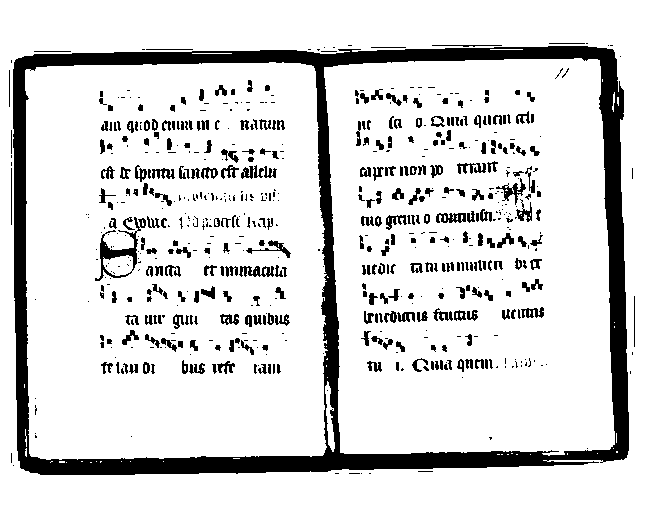 am quod enim in e natum
est de spiritu sancto est allelu
a
Sancta et immacula
ta uir gini tas quibus
te lau di bus refe ram
ne sci o. Quia quem celi
capere non po terant
tuo gremi o contulisti.
nedic ta tu in mulieri bus et
benedictus fructus uentris
tu i. Quia quem.
11